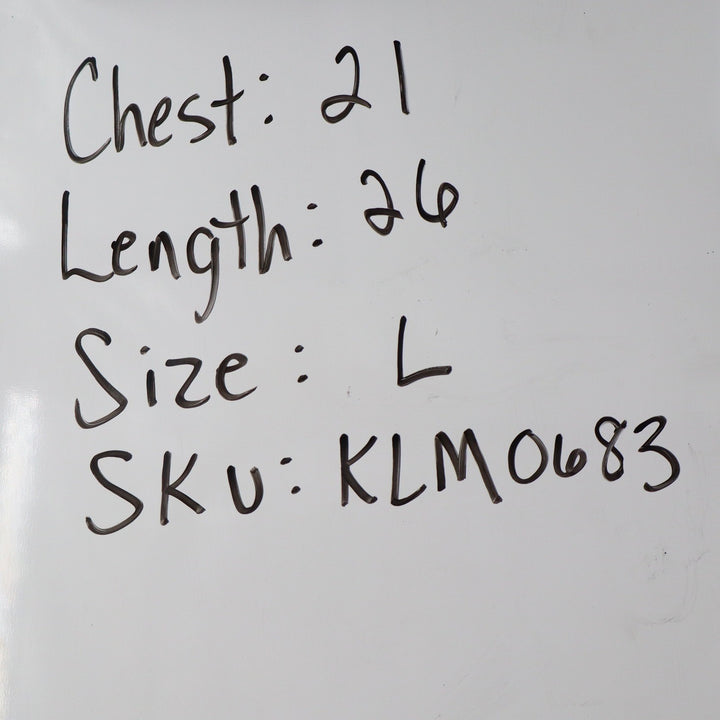 Chest: 21
Length: 26
Size: L
SKU: KLM0683